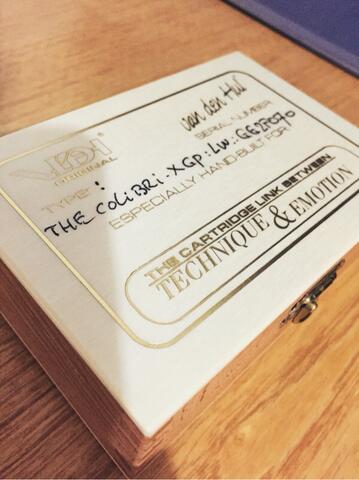 VDH
ORIGINAL
van den Hul
SERIAL NUMBER
TYPE:
THE COLiBRi-XGP.LW.
ESPECIALLY HAND-BUILT FOR
THE CARTRIDGE LINK BETWEEN
TECHNIQUE & EMOTION